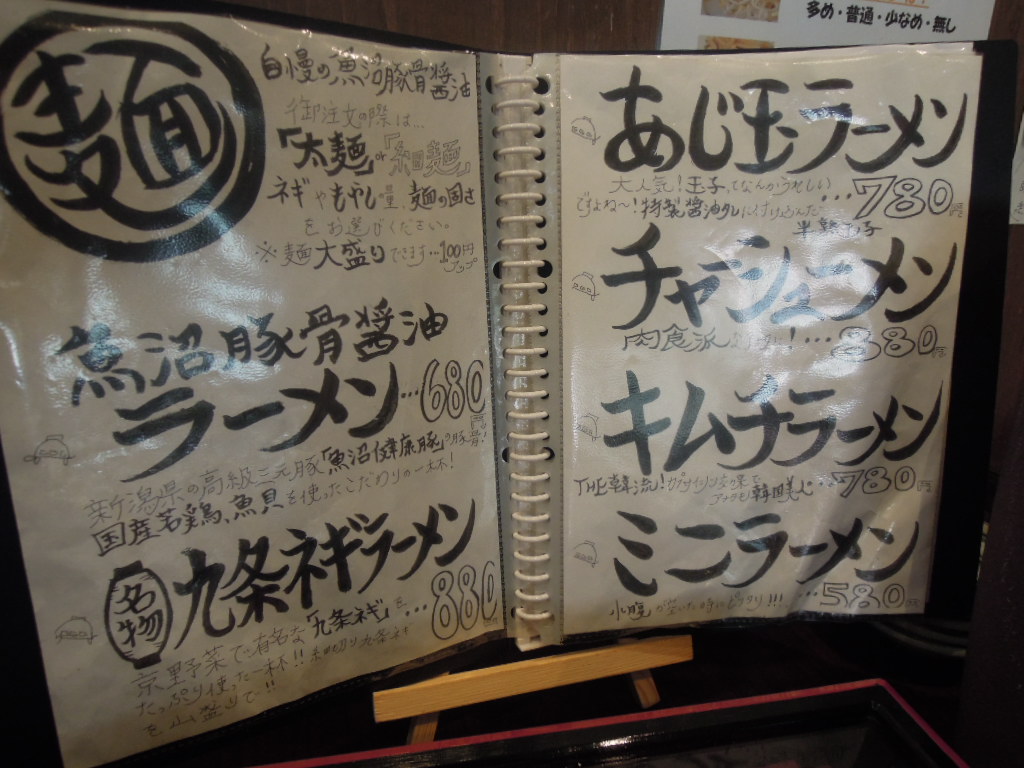 麺
自慢の魚沼豚骨醤油
御注文の際は…
「太麺」or「細麺」
ネギやもやし量、麺の固さ
をお選びください。
※麺大盛りできます…100円アップ
魚沼豚骨醤油
ラーメン…680円
新潟県の高級三元豚「魚沼健康豚」の豚骨!
国産若鶏、魚貝を使ったこだわりの一杯!
名物
九条ネギラーメン
…880円
京野菜で有名な「九条ネギ」を
たっぷり使った一杯!!
多め・普通・少なめ・無し
あじ玉ラーメン
大人気!玉子ってなんかうれしい
…780円
ですよね〜!特製醤油タレに付け込んだ
半熟玉子
チャーシューメン
肉食派
!…880円
キムチラーメン
THE韓流!カプサイシン効果で
アナタも韓国美人
…780円
ミニラーメン
…580円
小腹が空いた時にピッタリ!!!